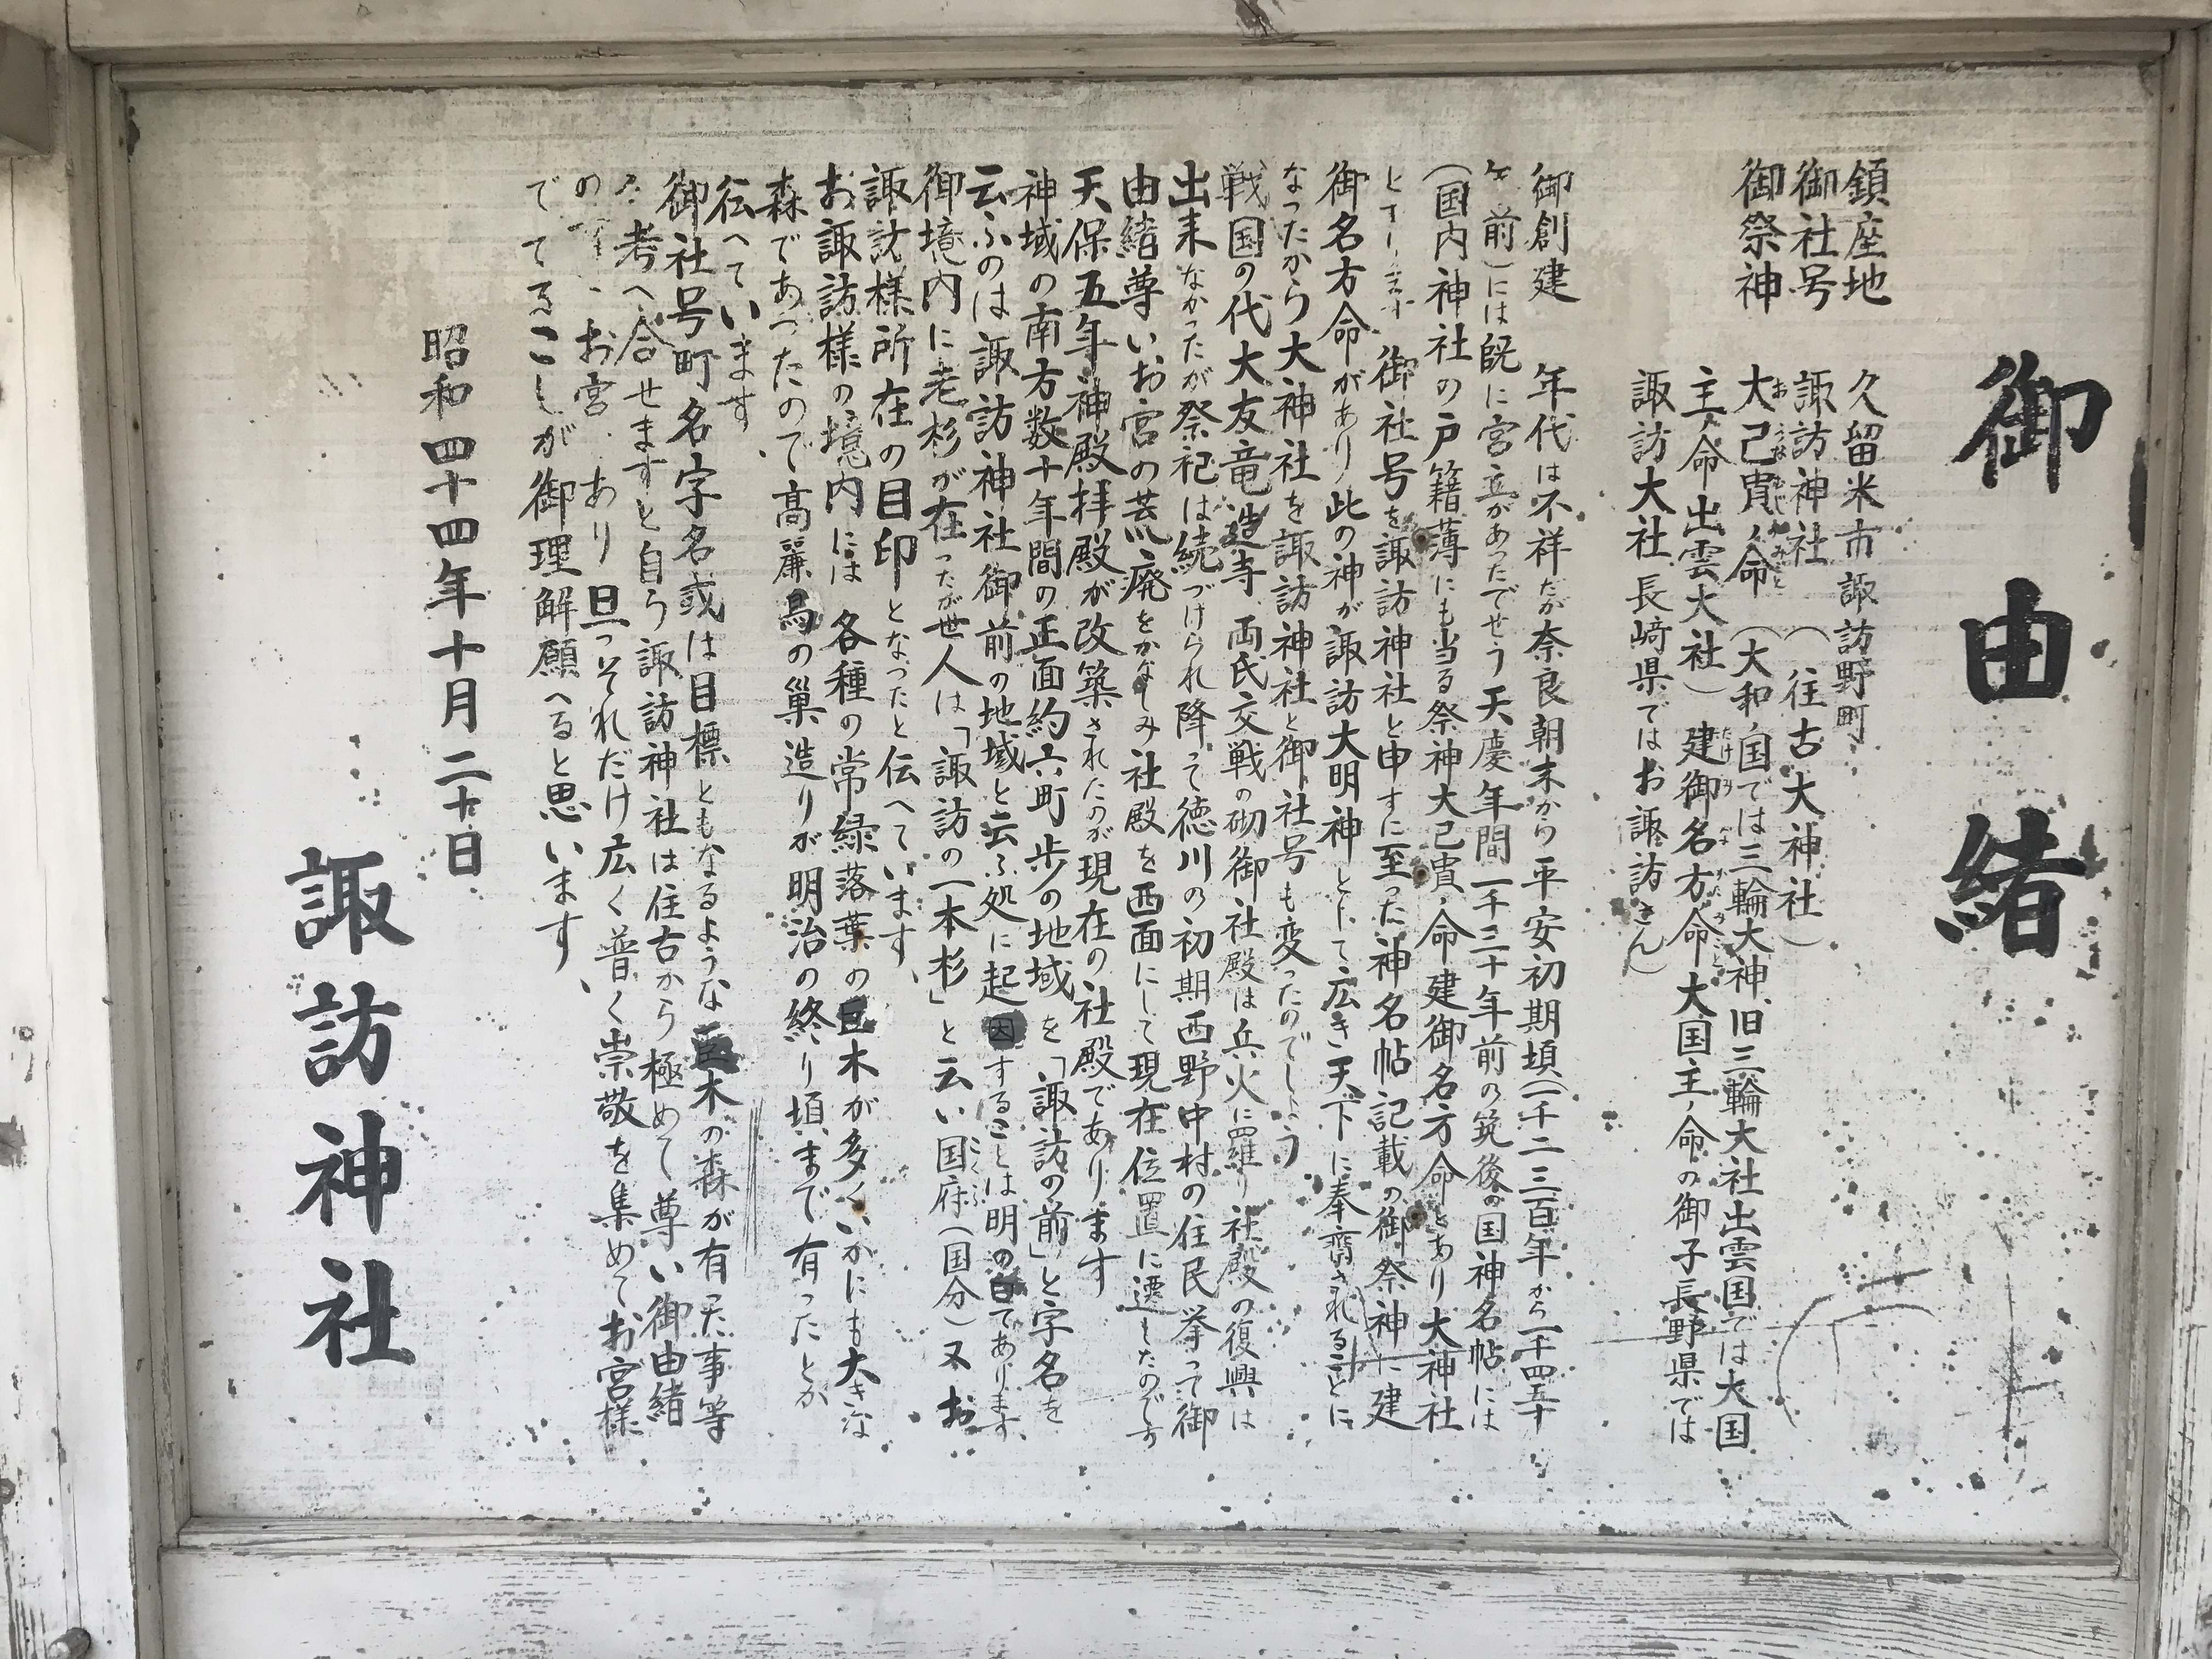 御由緒
鎮座地 久留米市 諏訪野町
御社号 諏訪神社 (往古大神社)
御祭神 大己貴ノ命 (大和ノ国では三輪大神、旧三輪大社出雲国では大国
主ノ命出雲大社) 建御名方命大国主ノ命の御子長野県では
諏訪大社長崎県ではお諏訪さん)
御創建 年代は不祥だが奈良朝末から平安初期頃(一千二三百年から一千四五十
年前)には既に宮立があったでせう天慶年間一千三十年前の筑後の国神名帖には
(国内神社の戸籍薄にも当る祭神大己貴ノ命建御名方命とあり大神社
御社号を諏訪神社と申すに至った神名帖記載の御祭神に建
御名方命があり此の神が諏訪大明神として広き天下に奉齋されることに
なったから大神社を諏訪神社と御社号も変ったのでしょう
戦国の代大友竜造寺両氏交戦の砌御社殿は兵火に羅り社殿の復興は
出来なかったが祭祀は続づけられ降って徳川の初期西野中村の住民挙って御
由緒尊いお宮の荒廃をかなしみ社殿を西面にして現在位置に遷したのです
天保五年神殿拝殿が改築されたのが現在の社殿であります
神域の南方数十年間の正面約六町歩の地域を「諏訪の前」と字名を
云ふのは諏訪神社御前の地域と云ふ処に起因することは明の白であります、
御境内に老杉が在ったが世人は「諏訪の一本杉」と云い国府(国分)又お
諏訪様所在の目印となったと伝へています、
お諏訪様の境内には各種の常緑落葉の巨木が多くいかにも大きな
森であったので高麗烏の巣造りが明治の終り頃まで有ったとか
伝へています、
御社号町名字名或は目標ともなるような巨木の森が有った事等
考へ合せますと自ら諏訪神社は住古から極めて尊い御由緒
の お宮 あり旦つそれだけ広く普く崇敬を集めてお宮様
でてることが御理解願へると思います、
昭和四十四年十月二十日
諏訪神社